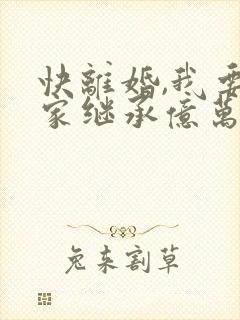 快離婚,我要
家继承億萬
兔来割草